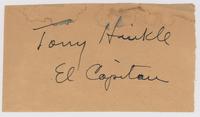 Tony Hinkle
El Capitan